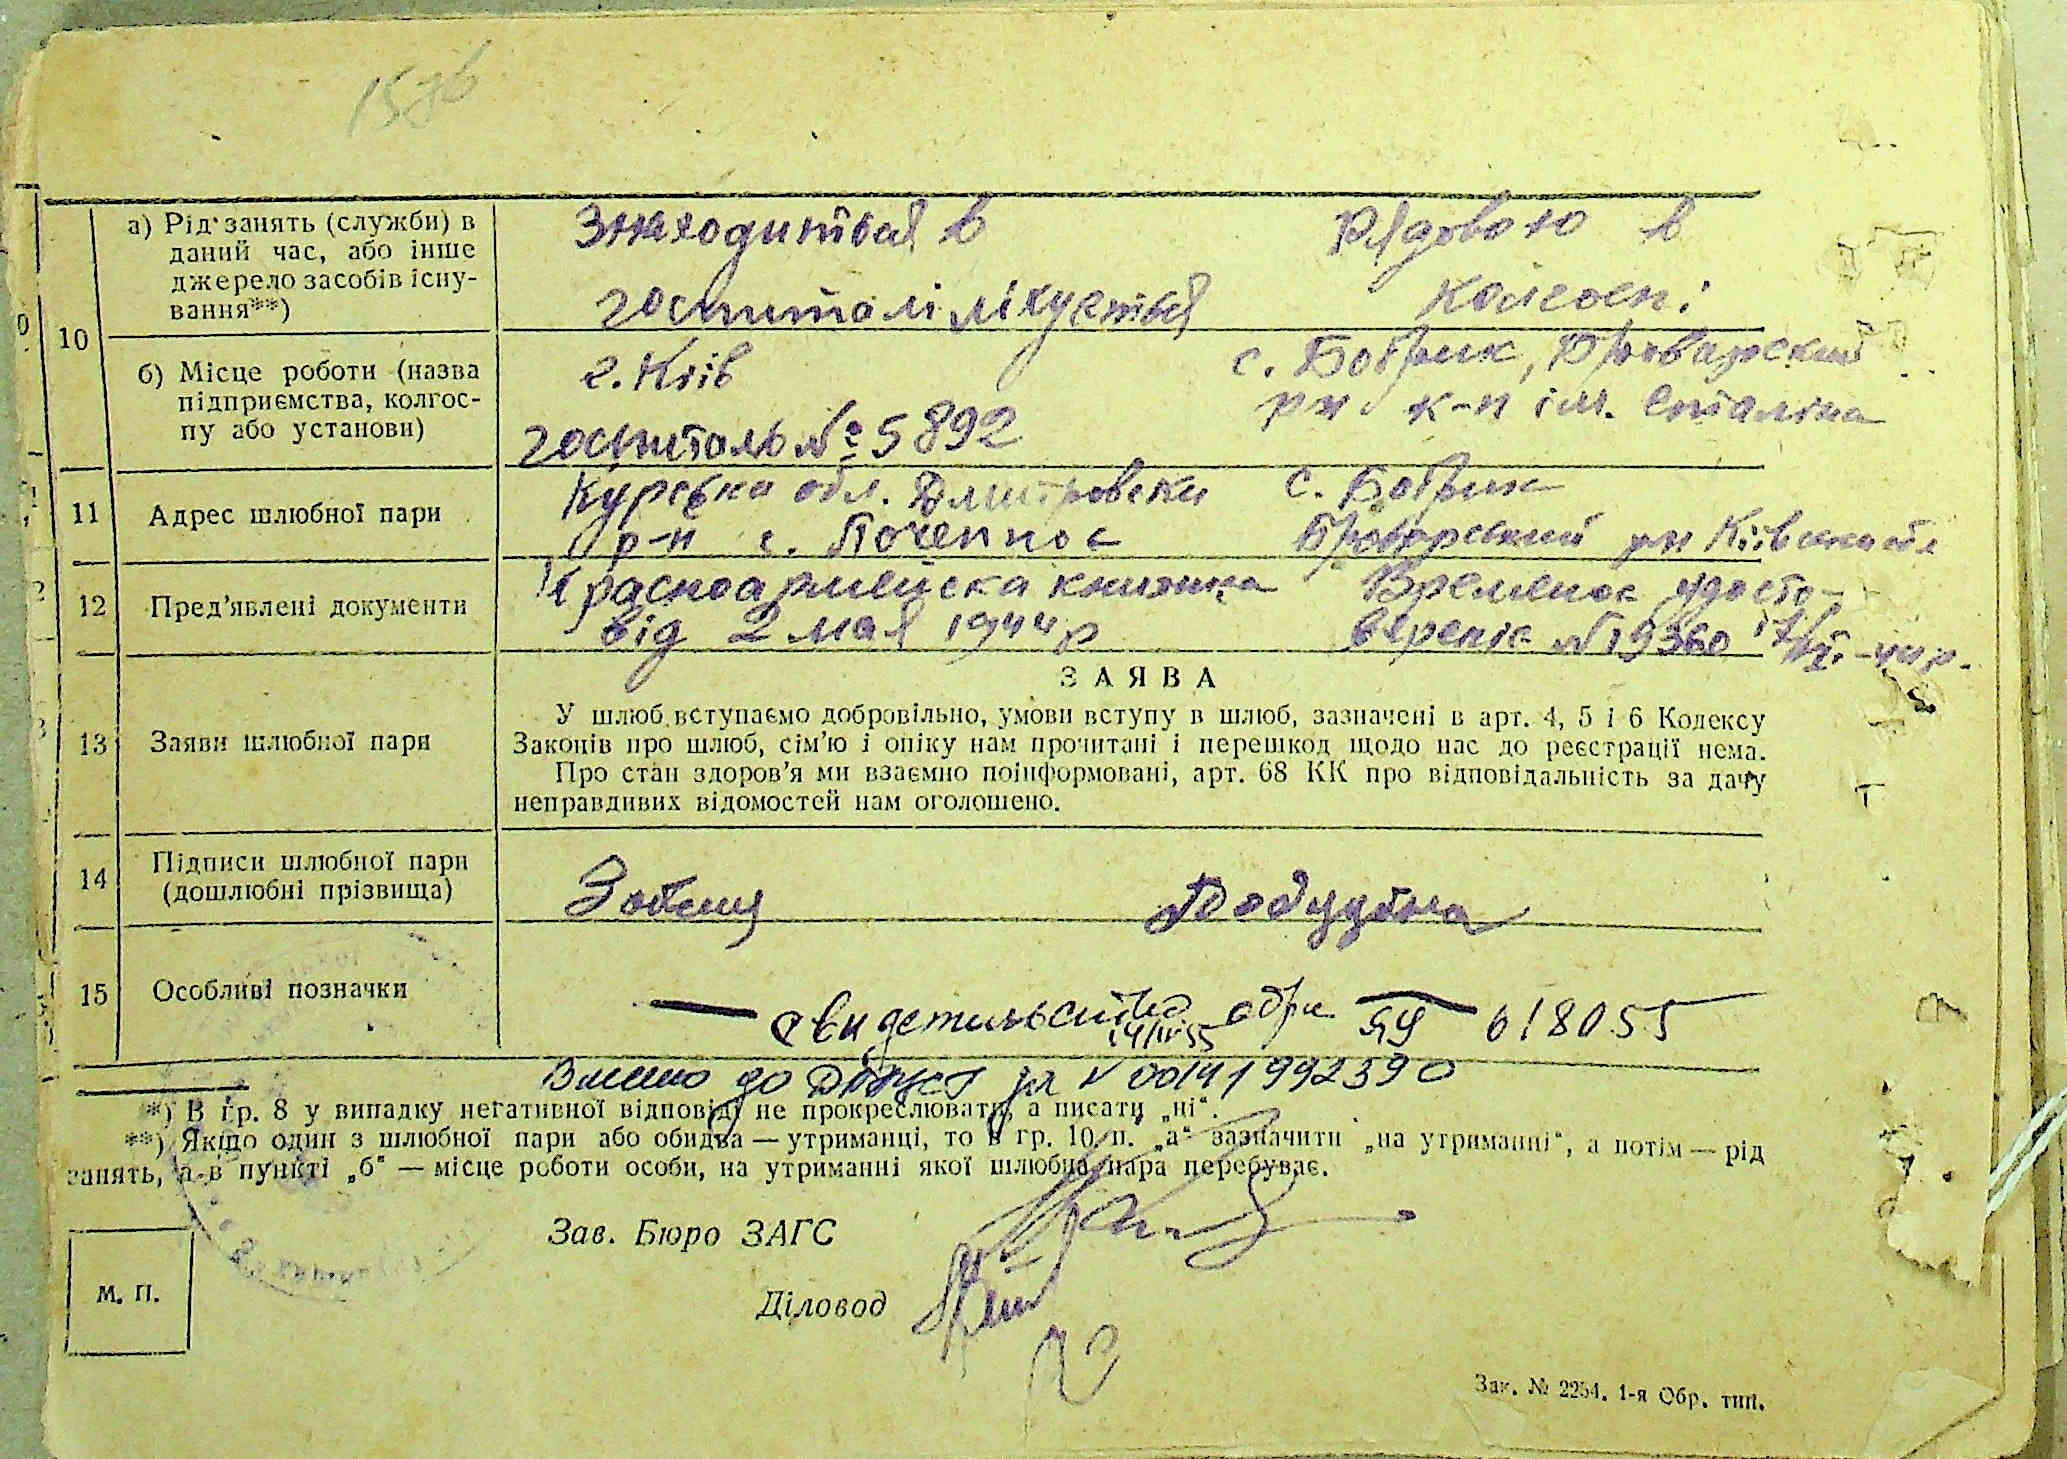 10
а) Рід занять (служби) в
даний час, або інше
джерело засобів існу-
вання**)
Знаходиться в
госпиталі лікується
Рядовою в
колгоспі
б) Місце роботи (назва
підприємства, колгос-
пу або установи)
г. Київ
госпиталь № 5892
с. Бобрик, Броварский
рн к-п ім. Сталіна
11
Адрес шлюбної пари
Курська обл. Дмитровски
р-н с. Почепное
с. Бобрик
Броварський рн Київська обл
12
Пред’явлені документи
Красноармейска книжка
від 2 мая 1944 р
Временое удосто-
вереніе № 19360
13
Заяви шлюбної пари
ЗАЯВА
У шлюб вступаємо добровільно, умови вступу в шлюб, зазначені в арт. 4, 5 і 6 Кодексу
Законів про шлюб, сім’ю і опіку нам прочитані і перешкод щодо нас до реєстрації нема.
Про стан здоров’я ми взаємно поінформовані, арт. 68 КК про відповідальність за дачу
неправдивих відомостей нам оголошено.
14
Підписи шлюбної пари
(дошлюбні прізвища)
15
Особливі позначки
018055
14/IV 55
Внесено до ДРАЦСГ за № 00141992390
*) В гр. 8 у випадку негативної відповіді не прокреслювати, а писати „ні“.
**) Якщо один з шлюбної пари або обидва — утриманці, то в гр. 10 п. „а“ зазначити „на утриманні“, а потім — рід
занять, а в пункті „б“ — місце роботи особи, на утриманні якої шлюбна пара перебуває.
Зав. Бюро ЗАГС
Діловод
М. П.
Зак. № 2254. 1-я Обр. тип.